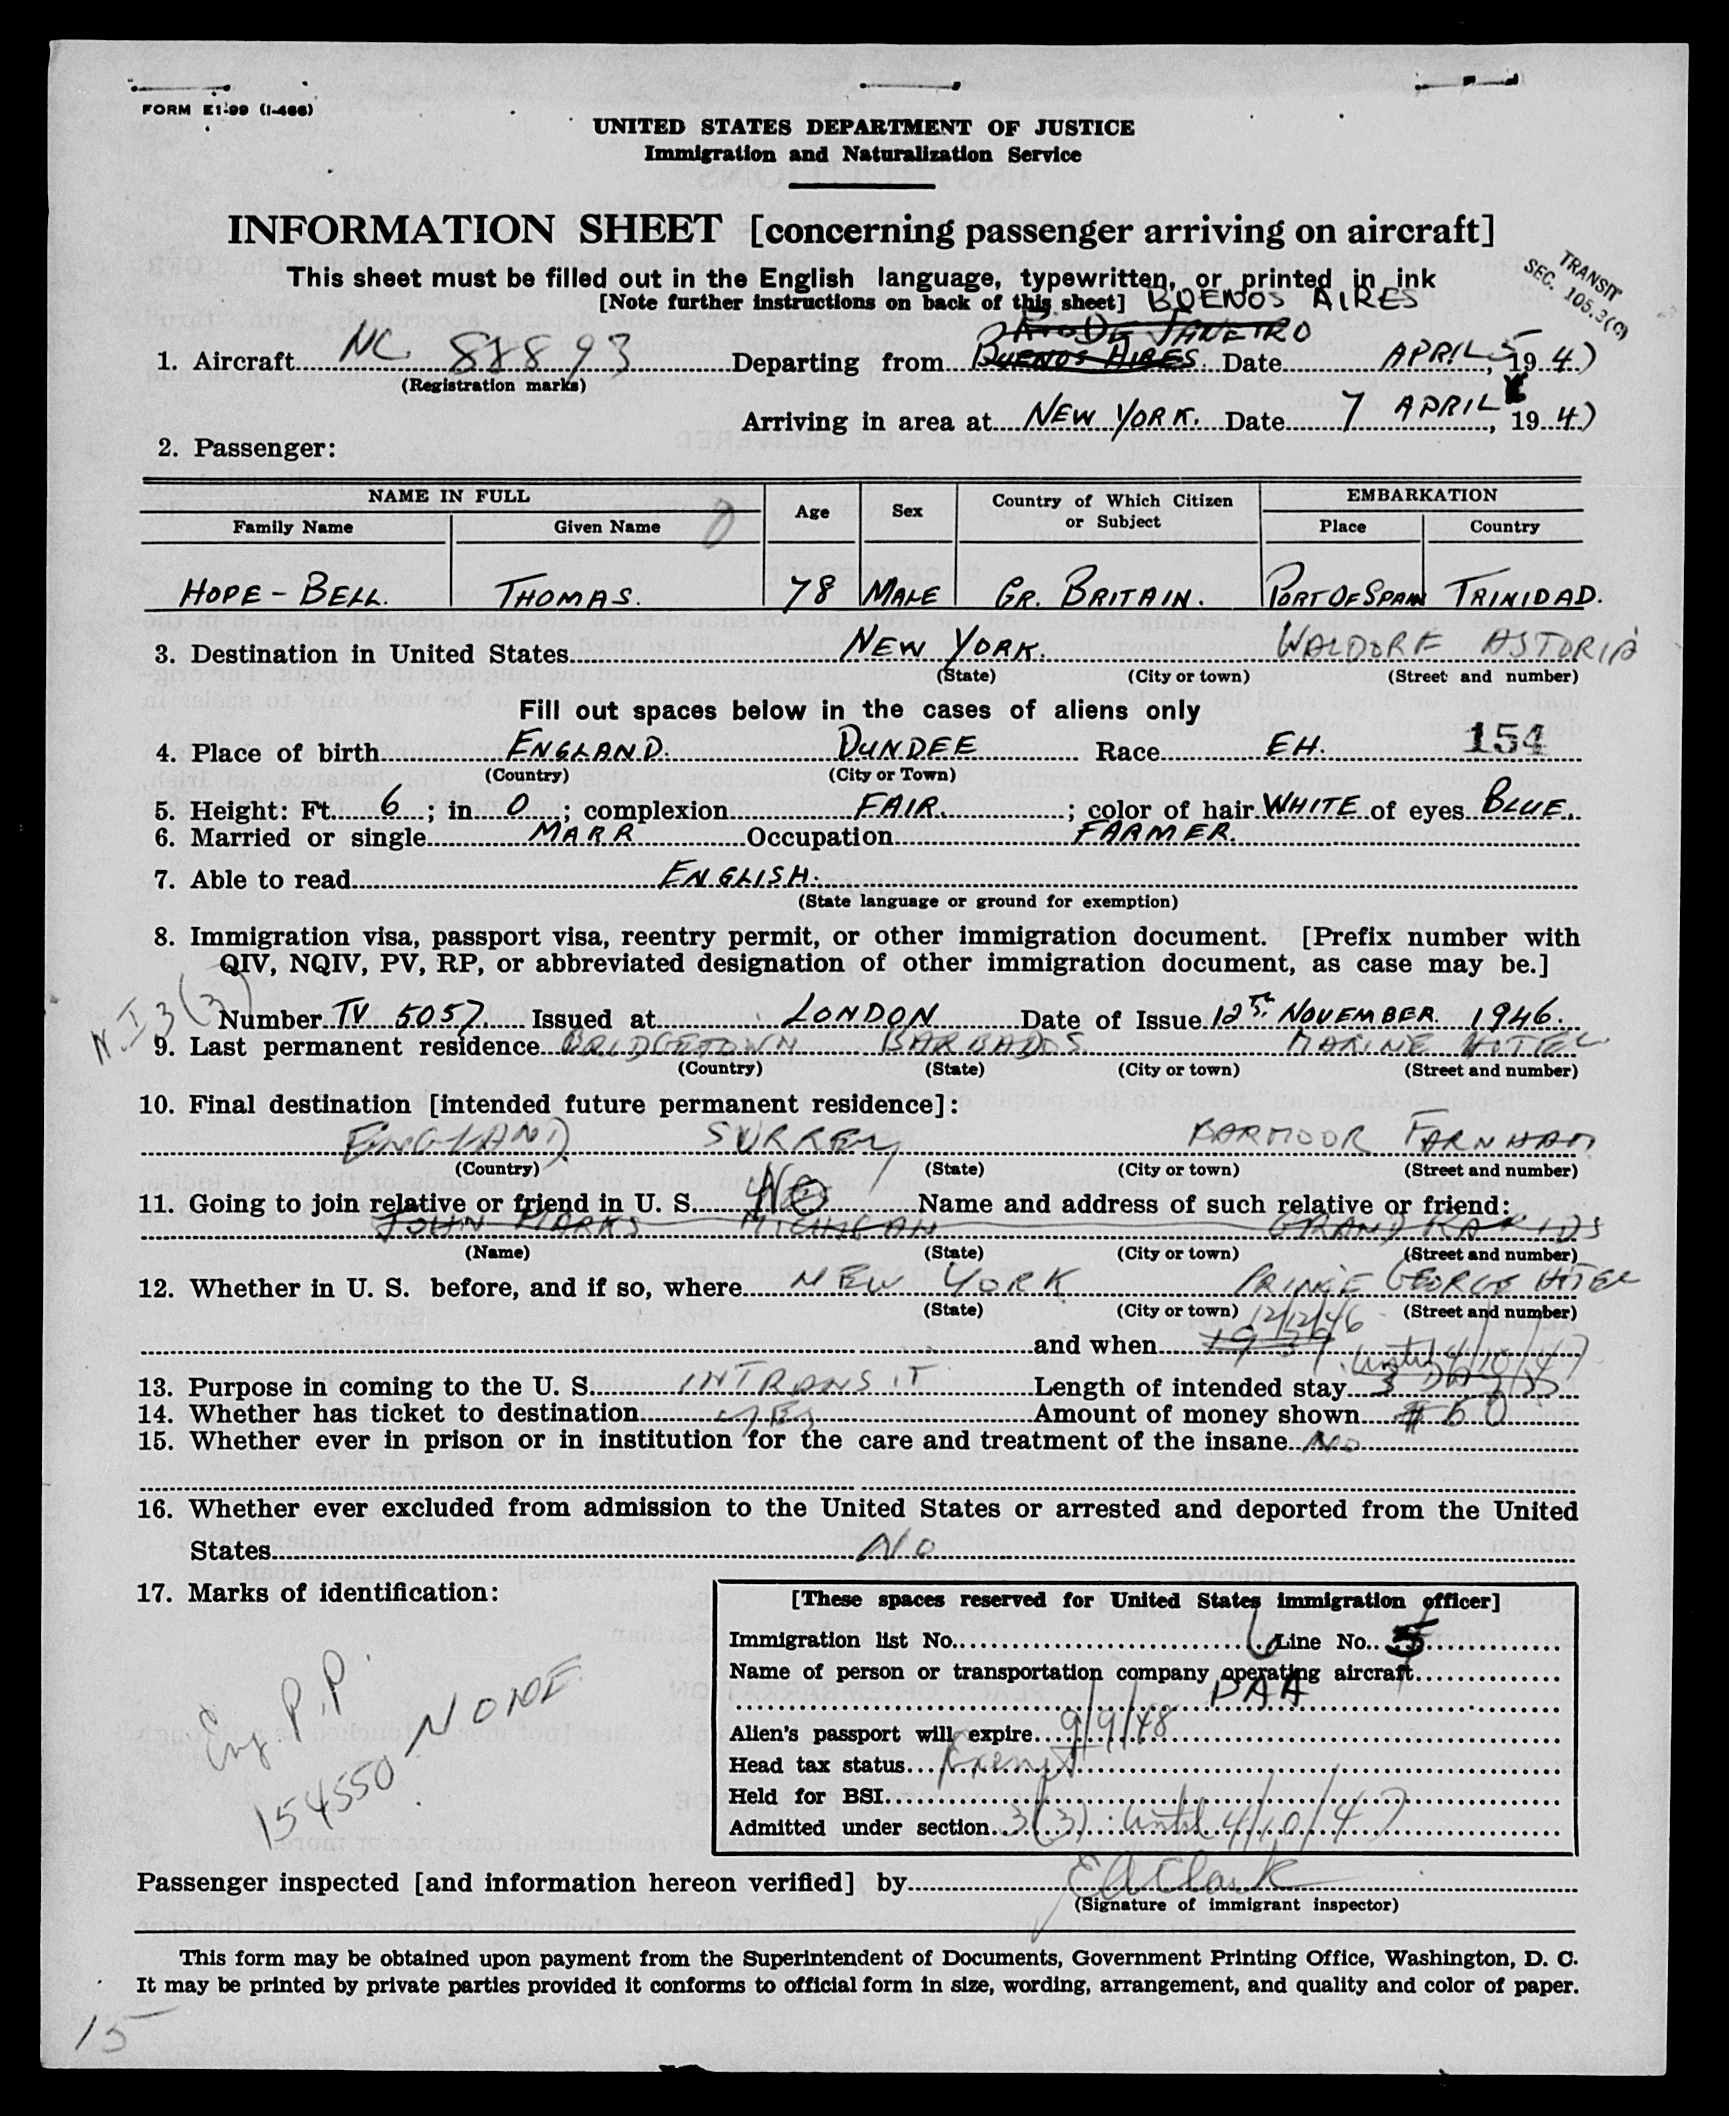 FORM E1-99 (I-466)
UNITED STATES DEPARTMENT OF JUSTICE
Immigration and Naturalization Service
INFORMATION SHEET [concerning passenger arriving on aircraft]
This sheet must be filled out in the English language, typewritten, or printed in ink
[Note further instructions on back of this sheet] BUENOS AIRES
TRANSIT
SEC. 105.3(C)
RIO DE JANEIRO
1. Aircraft NC 88893 Departing from BUENOS AIRES Date APRIL 5, 1947
(Registration marks)
Arriving in area at NEW YORK. Date 7 APRIL, 1947
2. Passenger:
NAME IN FULL Age Sex Country of Which Citizen or Subject EMBARKATION
Family Name Given Name Place Country
HOPE-BELL. THOMAS. 78 MALE GR. BRITAIN. PORT OF SPAIN TRINIDAD.
3. Destination in United States NEW YORK. WALDORF ASTORIA
(State) (City or town) (Street and number)
Fill out spaces below in the cases of aliens only
4. Place of birth ENGLAND. DUNDEE Race EH. 154
(Country) (City or Town)
5. Height: Ft. 6; in. 0; complexion FAIR.; color of hair WHITE of eyes BLUE.
6. Married or single MARR Occupation FARMER.
7. Able to read ENGLISH.
(State language or ground for exemption)
8. Immigration visa, passport visa, reentry permit, or other immigration document. [Prefix number with
QIV, NQIV, PV, RP, or abbreviated designation of other immigration document, as case may be.]
Number TV 5057 Issued at LONDON Date of Issue 12TH NOVEMBER 1946.
9. Last permanent residence BRIDGETOWN BARBADOS MARINE HOTEL
(Country) (State) (City or town) (Street and number)
10. Final destination [intended future permanent residence]:
ENGLAND SURREY BARMOOR FARNHAM
(Country) (State) (City or town) (Street and number)
11. Going to join relative or friend in U. S. NO Name and address of such relative or friend:
JOHN MARKS MICHIGAN GRAND RAPIDS
(Name) (State) (City or town) (Street and number)
12. Whether in U. S. before, and if so, where NEW YORK PRINCE GEORGE HOTEL
(State) (City or town) (Street and number)
12/12/46
and when 1939
until 4/10/47
13. Purpose in coming to the U. S. INTRANSIT Length of intended stay 3 DAYS
14. Whether has ticket to destination YES Amount of money shown $50
15. Whether ever in prison or in institution for the care and treatment of the insane NO
16. Whether ever excluded from admission to the United States or arrested and deported from the United
States NO
17. Marks of identification:
Eng. P.P.
154550 NONE
[These spaces reserved for United States immigration officer]
Immigration list No. 6 Line No. 5
Name of person or transportation company operating aircraft
PAA
Alien's passport will expire 9/9/48
Head tax status Exempt
Held for BSI
Admitted under section 3(3) until 4/10/47
Passenger inspected [and information hereon verified] by EA Clark
(Signature of immigrant inspector)
This form may be obtained upon payment from the Superintendent of Documents, Government Printing Office, Washington, D. C.
It may be printed by private parties provided it conforms to official form in size, wording, arrangement, and quality and color of paper.
15